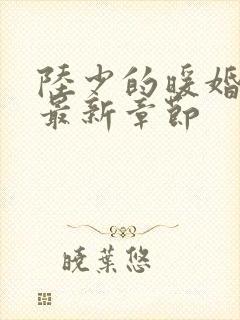 陸少的暖婚
最新章節
曉葉悠